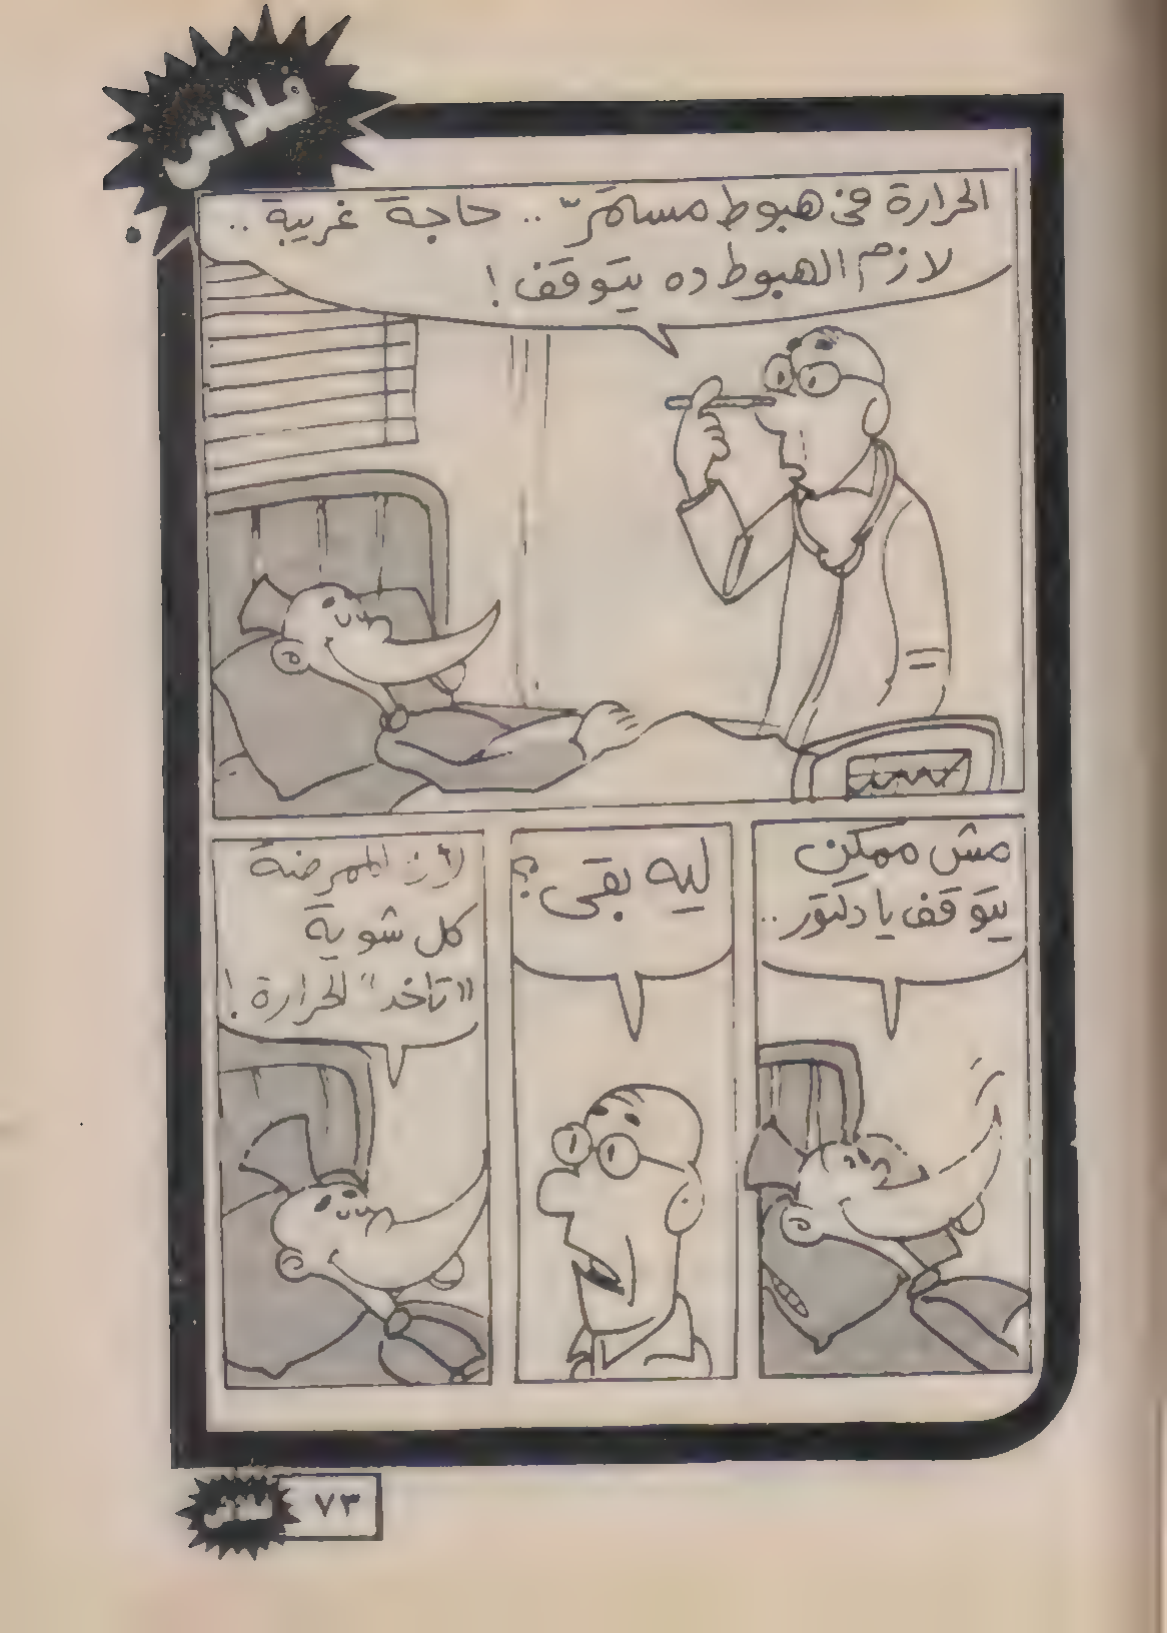 فلاش
الحرارة فى هبوط مستمرّ .. حاجة غريبة ..
لازم الهبوط ده يتوقف !
مش ممكن
يتوقف يا دكتور ..
ليه بقى ؟
لأن الممرضة
كل شوية
"تاخد" الحرارة !
فلاش
٧٣